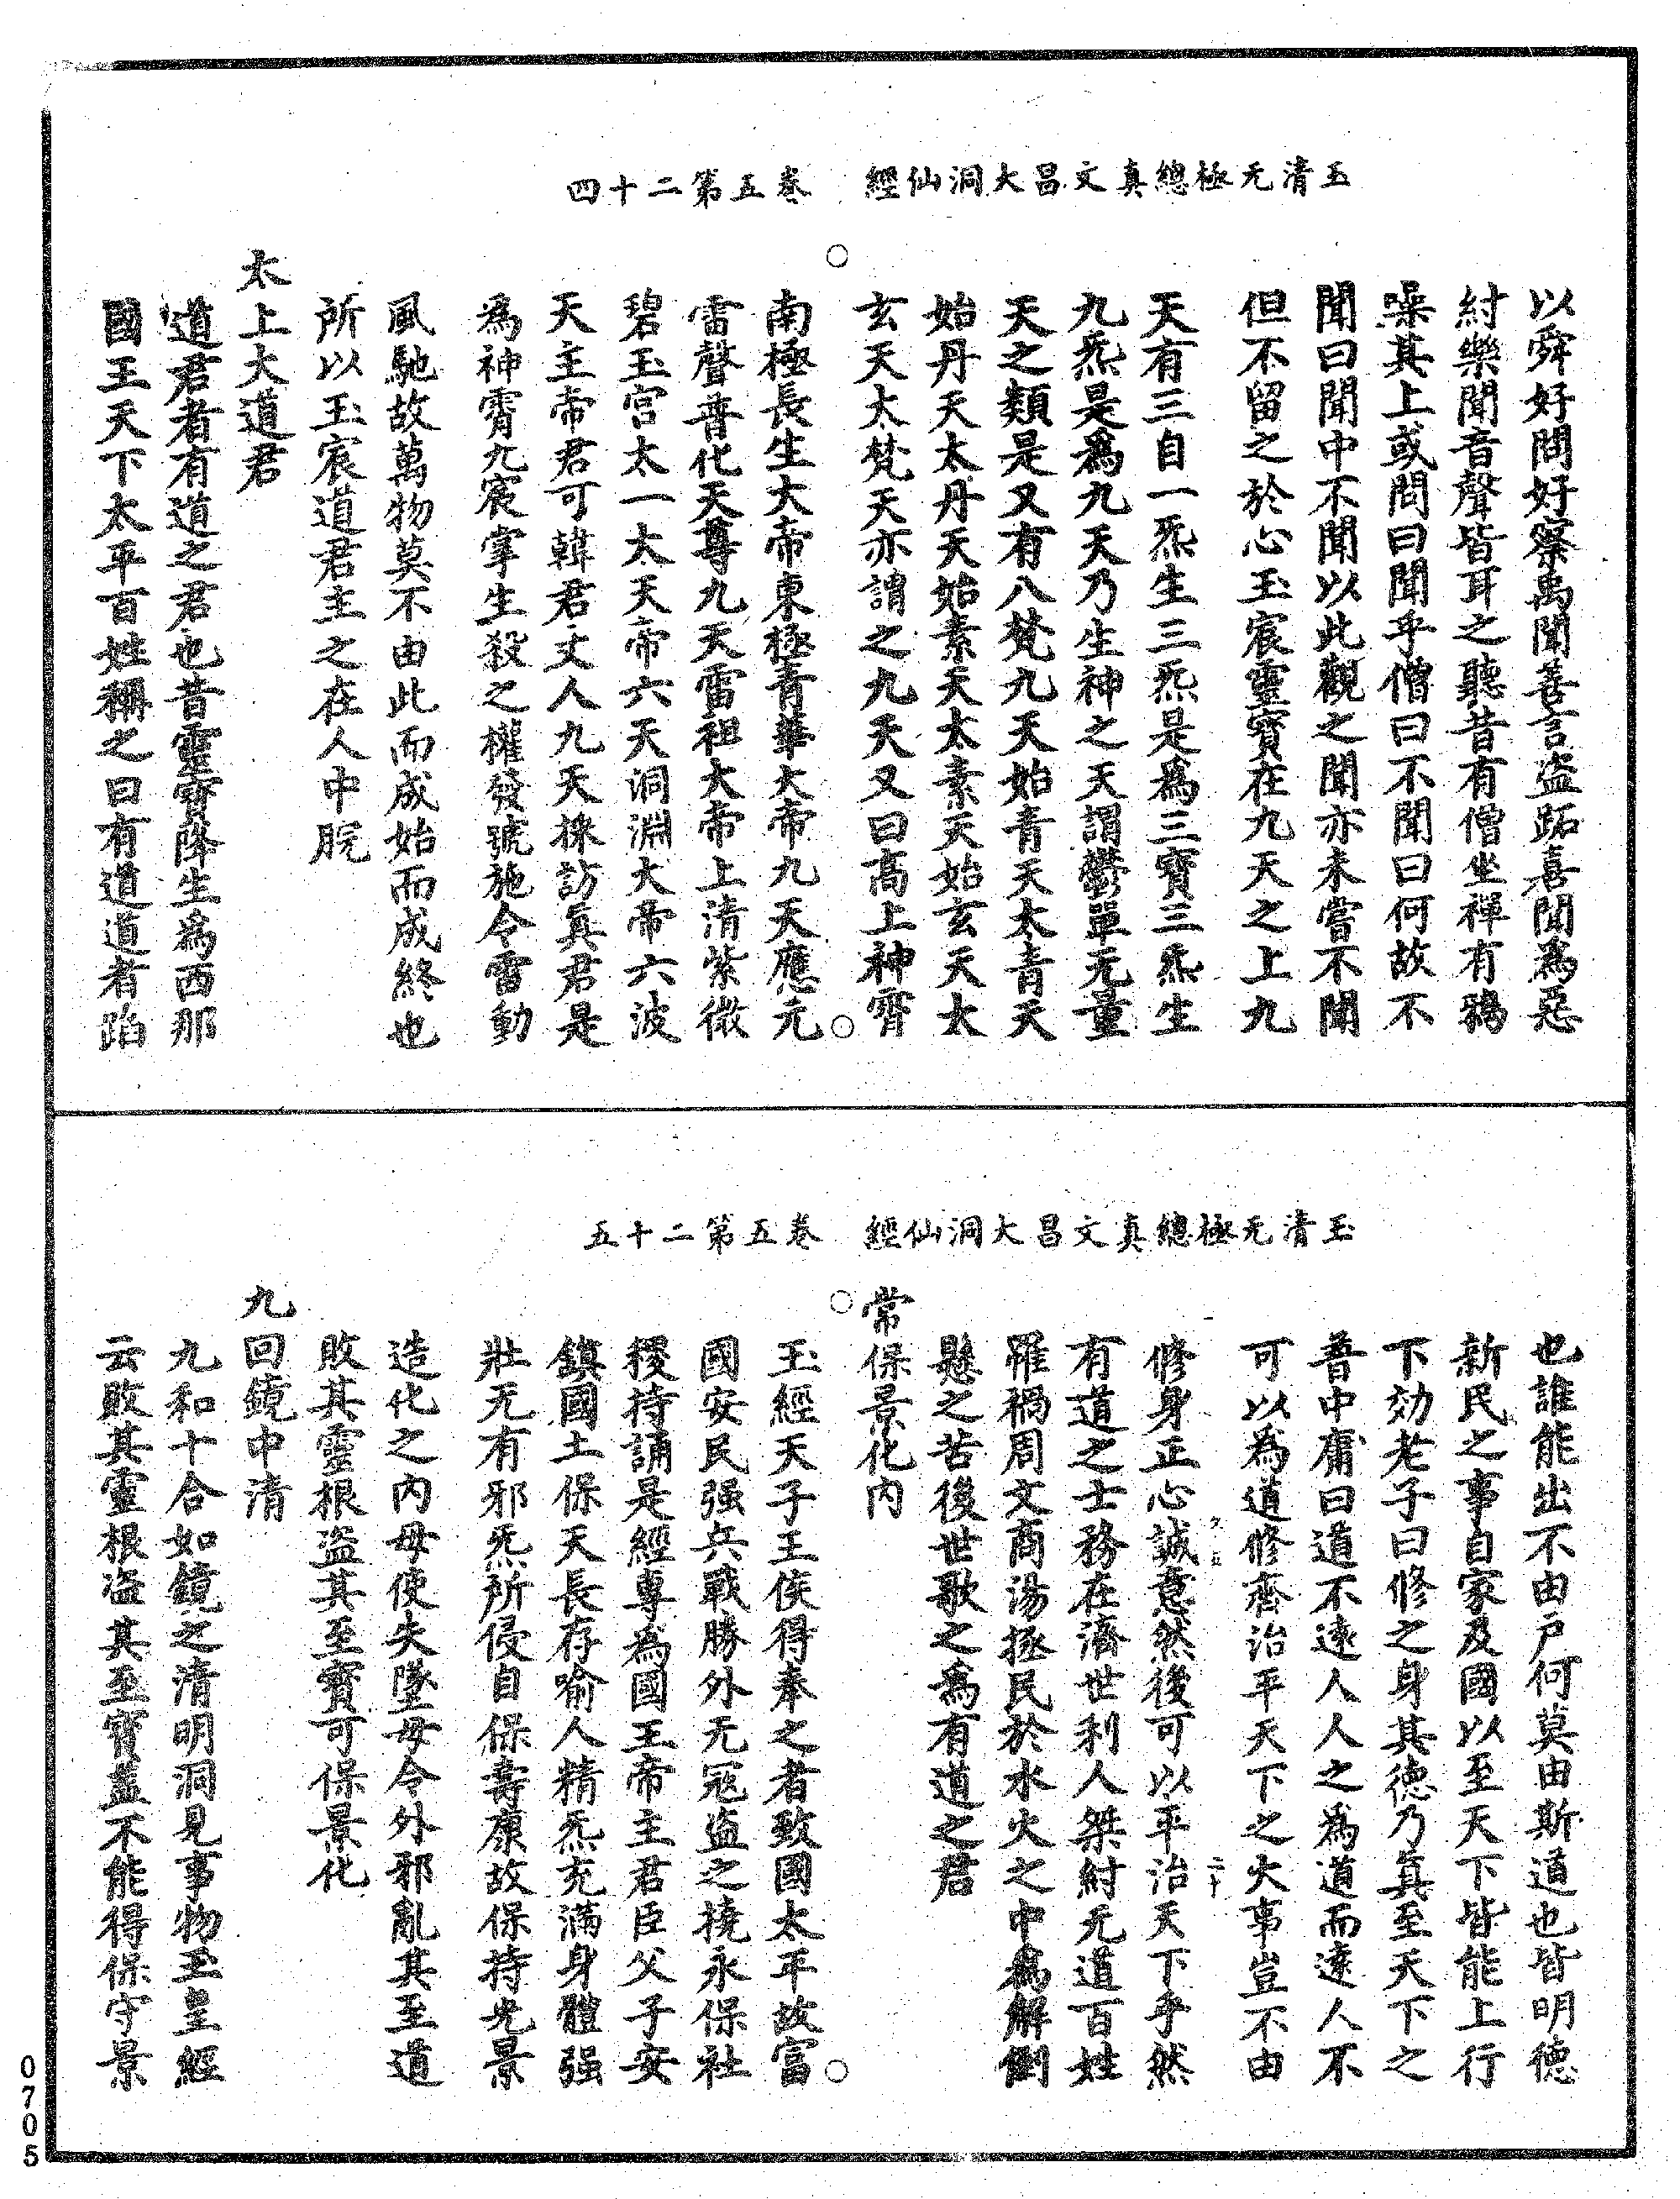 玉清无極總真文昌大洞仙經　卷五第二十四
以舜好問好察禹聞善言盜跖喜聞為惡
紂樂聞音聲皆耳之聽昔有僧坐禪有鵶
噪其上或問曰聞乎僧曰不聞曰何故不
聞曰聞中不聞以此觀之聞亦未嘗不聞
但不留之於心玉宸靈寶在九天之上九
天有三自一炁生三炁是為三寶三炁生
九炁是為九天乃生神之天謂鬱單无量
天之類是又有八梵九天始青天太青天
始丹天太丹天始素天太素天始玄天太
玄天太梵天亦謂之九天又曰高上神霄
南極長生大帝東極青華大帝九天應元
雷聲普化天尊九天雷祖大帝上清紫微
碧玉宮太一太天帝六天洞淵大帝六波
天主帝君可韓君丈人九天採訪真君是
為神霄九宸掌生殺之權發號施令雷動
風馳故萬物莫不由此而成始而成終也
所以玉宸道君主之在人中脘
太上大道君
道君者有道之君也昔靈寶降生為西那
國王天下太平百姓稱之曰有道道者蹈
玉清无極總真文昌大洞仙經　卷五第二十五
也誰能出不由戶何莫由斯道也皆明德
新民之事自家及國以至天下皆能上行
下効老子曰修之身其德乃真至天下之
普中庸曰道不遠人人之為道而遠人不
可以為道修齊治平天下之大事豈不由
修身正心誠意然後可以平治天下乎然
有道之士務在濟世利人桀紂无道百姓
罹禍周文商湯拯民於水火之中為解倒
懸之苦後世歌之為有道之君
常保景化內
玉經天子王侯得奉之者致國太平故富
國安民强兵戰勝外无冦盜之撓永保社
稷持誦是經專為國王帝主君臣父子安
鎮國土保天長存喻人精炁充滿身體强
壯无有邪炁所侵自保壽康故保持光景
造化之內毋使失墜毋令外邪亂其至道
敗其靈根盜其至寶可保景化
九回鏡中清
九和十合如鏡之清明洞見事物玉皇經
云敗其靈根盜其至寶蓋不能得保守景
0705